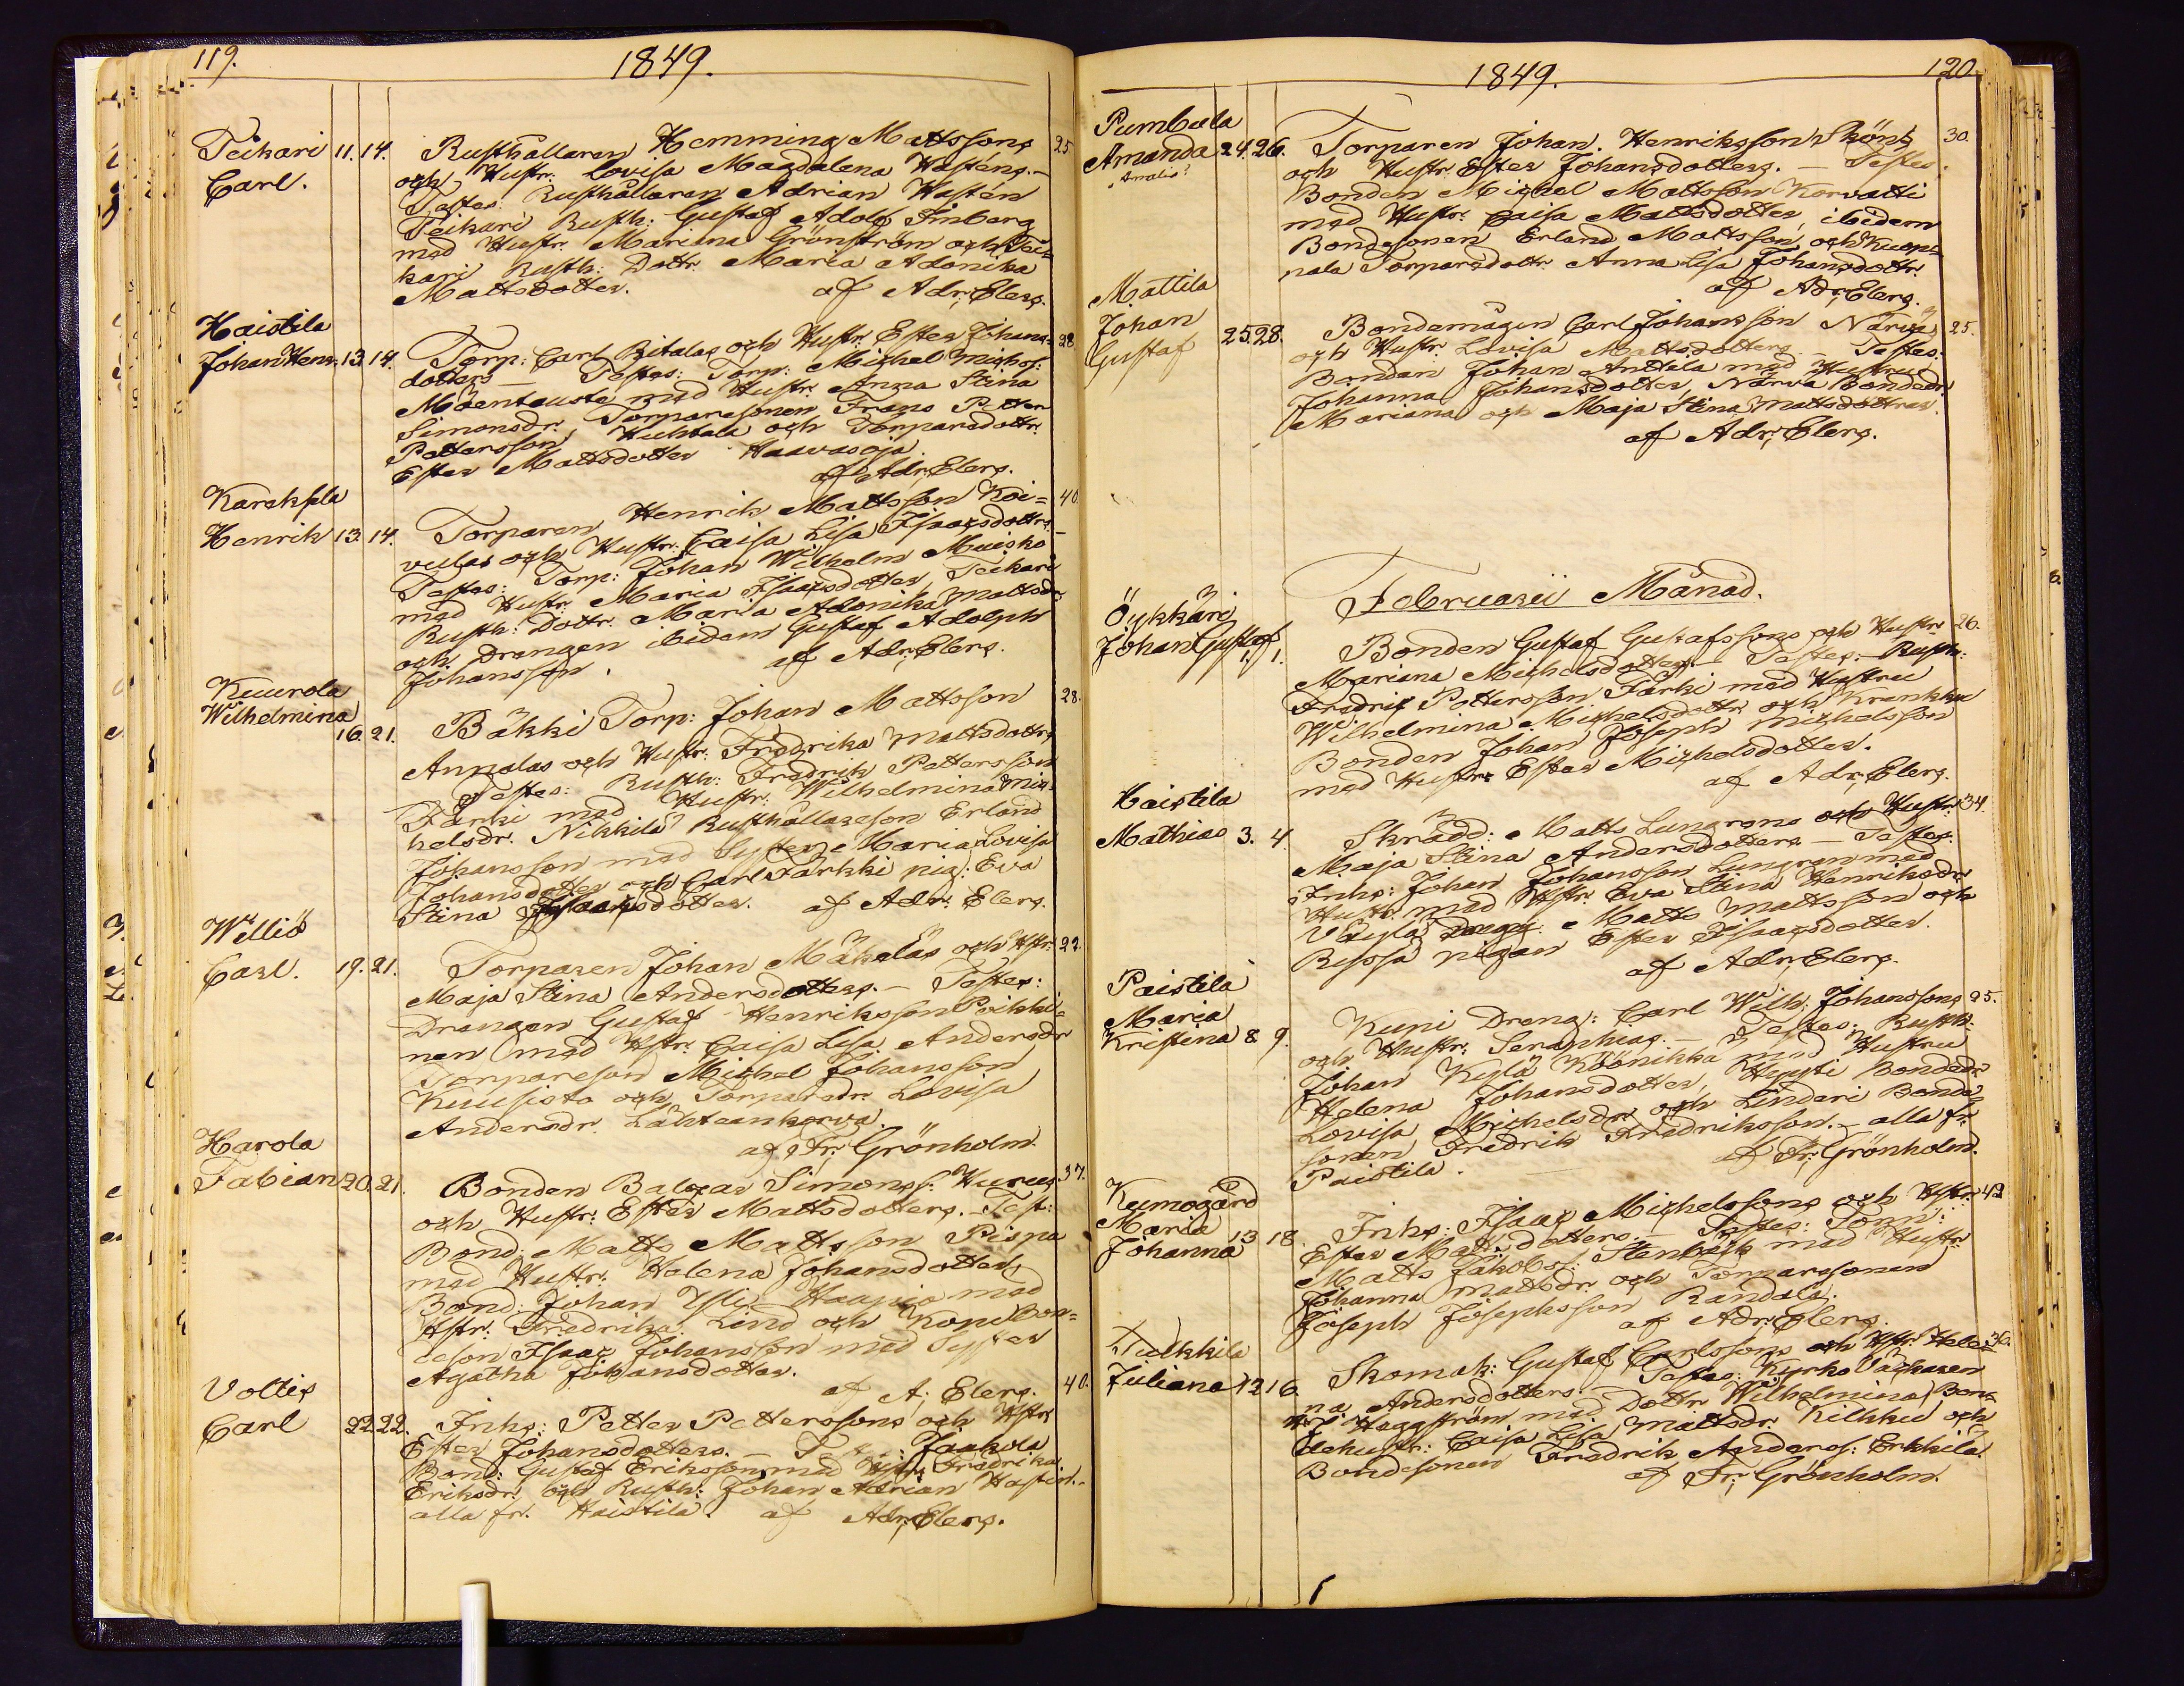 119.
1849.
Teikari 11. 14. Rusthållaren Hemming Mattssons 25
Carl. och Hustr: Lovisa Magdalena Wasténs.-
Testes: Rusthållaren Adrian Wastén
Teikari Rusth: Gustaf Adolf
med Hustr. Mariana Grönström och Tei=
kari Rusth: Dottr. Maria Adonika
Mattsdotter. af Adr; Elers.
Haistila
Johan Henr. 13. 14. Torp: Carl Ritalas och Hustr. Ester Johans= 28
dotters — Testes: Torp: Michel Michs:
med Hustr. Anna Stina
Simonsdr. Torparesonen Frans Petter
Pettersson Huhtala och Torparedottr.
Ester Mattsdotter Haavasoja
af Adr; Elers.
Karskela
Henrik 13. 14. Torparen Henrik Mattsson Koi= 40.
vulas och Hustr: Caisa Lisa Isaacsdottrs.
Testes: Torp: Johan Wilhelm Muisko
med Hustr. Maria Isaacsdotter, Teikari
Rusth: Dottr. Maria Adonika Mattsdr
och Drengen ibidem Gustaf Adolph
Johansson. af Adr; Elers.
Kuurola
Wilhelmina
16. 21. Bäkki Torp: Johan Mattsson 28.
Annalas och Hustr: Fredrika Mattsdottrs
Testes: Rusth: Fredrik Pettersson
Färki med Hustr: Wilhelmina Mic=
helsdr. Nikkilä Rusthållareson Erland
Johansson med Syster Maria Lovisa
Johansdotter och Carl Färkki pig: Eva
Stina Isaacsdotter. af Adr. Elers.
Williö
Carl. 19. 21. Torparen Johan Mäkeläs och Hstr: 22.
Maja Stina Andersdotters. — Testes:
Drengen Gustaf Henriksson Poikki=
nen med Hstr. Caisa Lisa Andersdr
Torpareson Michel Johansson
Kuusisto och Torparedr. Lovisa
Andersdr. Lähteenkorva.
af Fr: Grönholm.
Harola
Fabian 20. 21. Bonden Baltzar Simonss: Hurus. 37.
och Hustr: Ester Mattsdotters. — Test:
Bond: Matts Mattsson Pispa
med Hustr: Helena Johansdotter,
Bond: Johan Yli Haapio med
Hstr: Fredrika Lind och Koni Bon=
deson Isaac Johansson med Syster
Agatha Johansdotter.
af A; Elers.
Voltis
Carl 22 22. Inhs: Petter Petterssons och Hstr 40.
Ester Johansdotters. — Jaakola
Bond: Gustaf Eriksson med Hstr Fredrika
Eriksdr. och Rusth: Johan Adrian Hastin.
alla fr. Haistila. af Adr; Elers.
1849.
120
Pumbula
Amanda 24. 26. Torparen Johan Henriksson Skönts 30.
"Analis" och Hustr. Ester Johansdotters. — Testes
Bonden Michel Mattsson Korvatti
med Hustr. Caisa Mattsdotter, ibidem
Bondesonen Erland Mattsson och Kump=
nala Torparedottr. Anna Lisa Johansdottr.
af Adr; Elers.
Mattila
Johan 25 28. Bondemågen Carl Johansson Närvä 25.
Gustaf och Hustr. Lovisa Mattsdotters — Testes.
Bonden Johan Anttila med Hustru
Johanna Johansdotter, Närvä Bondedr
Mariana och Maja Stina Mattsdöttrar.
af Adr; Elers.
Februarii Månad.
Öykkäri
Johan Gustaf 1. 1. Bonden Gustaf Gustafssons och Hustr 26.
Mariana Michelsdotters — Testes: — Rusth:
Fredric Pettersson Färki med Hustru
Wilhelmina Michelsdottr och Krankku
Bonden Johan Joseph Michelsson
med Hustr: Ester Michelsdotter.
af Adr; Elers.
Haistila
Mathias 3. 4. Skrädd: Matts Lungrens och Hustr. 34.
Maja Stina Andersdotters — Testes.
Inhs: Johan Johansson Lungren med
Hustr. med Hstr. Eva Stina Henriksdr
Matts Mattsson och
Ryssä pigan Ester Isaacsdotter.
af Adr; Elers.
Paistila
Maria
Kristina 8. 9. Kuni Dreng: Carl Wilh: Johanssons 25.
och Hustr: Seraphias. — Testes: Rusth:
Johan Kylä Köönikkä med Hustru
Helena Johansdotter, Hyyti Bondedr
Lovisa Michelsdr. och Lindari Bonde=
sonen Fredrik Fredriksson. — alla fr.
Paistila. af Fr; Grönholm.
Kumogård
Maria
Johanna 13 18. Inhs: Isaac Michelssons och Hstr: 42
Ester Mattsdotters. — Testes: Torp:
Matts Jakobs: Stenbäck med Hustr
Johanna Mattsdr. och Torparesonen
Joseph Josephsson Randala.
af Adr: Elers.
Tulkkila
Juliana 12 16. Skomak: Gustaf Carlssons och Hstr. Hele= 30.
na Andersdotters. — Testes: Kyrko Väktaren
Haggström med Dottr Wilhelmina, Bon=
dehustr: Caisa Lisa Mattsdr. Kilkku och
Bondesonen Fredrik Anderss: Erkkilä.
af Fr; Grönholm.